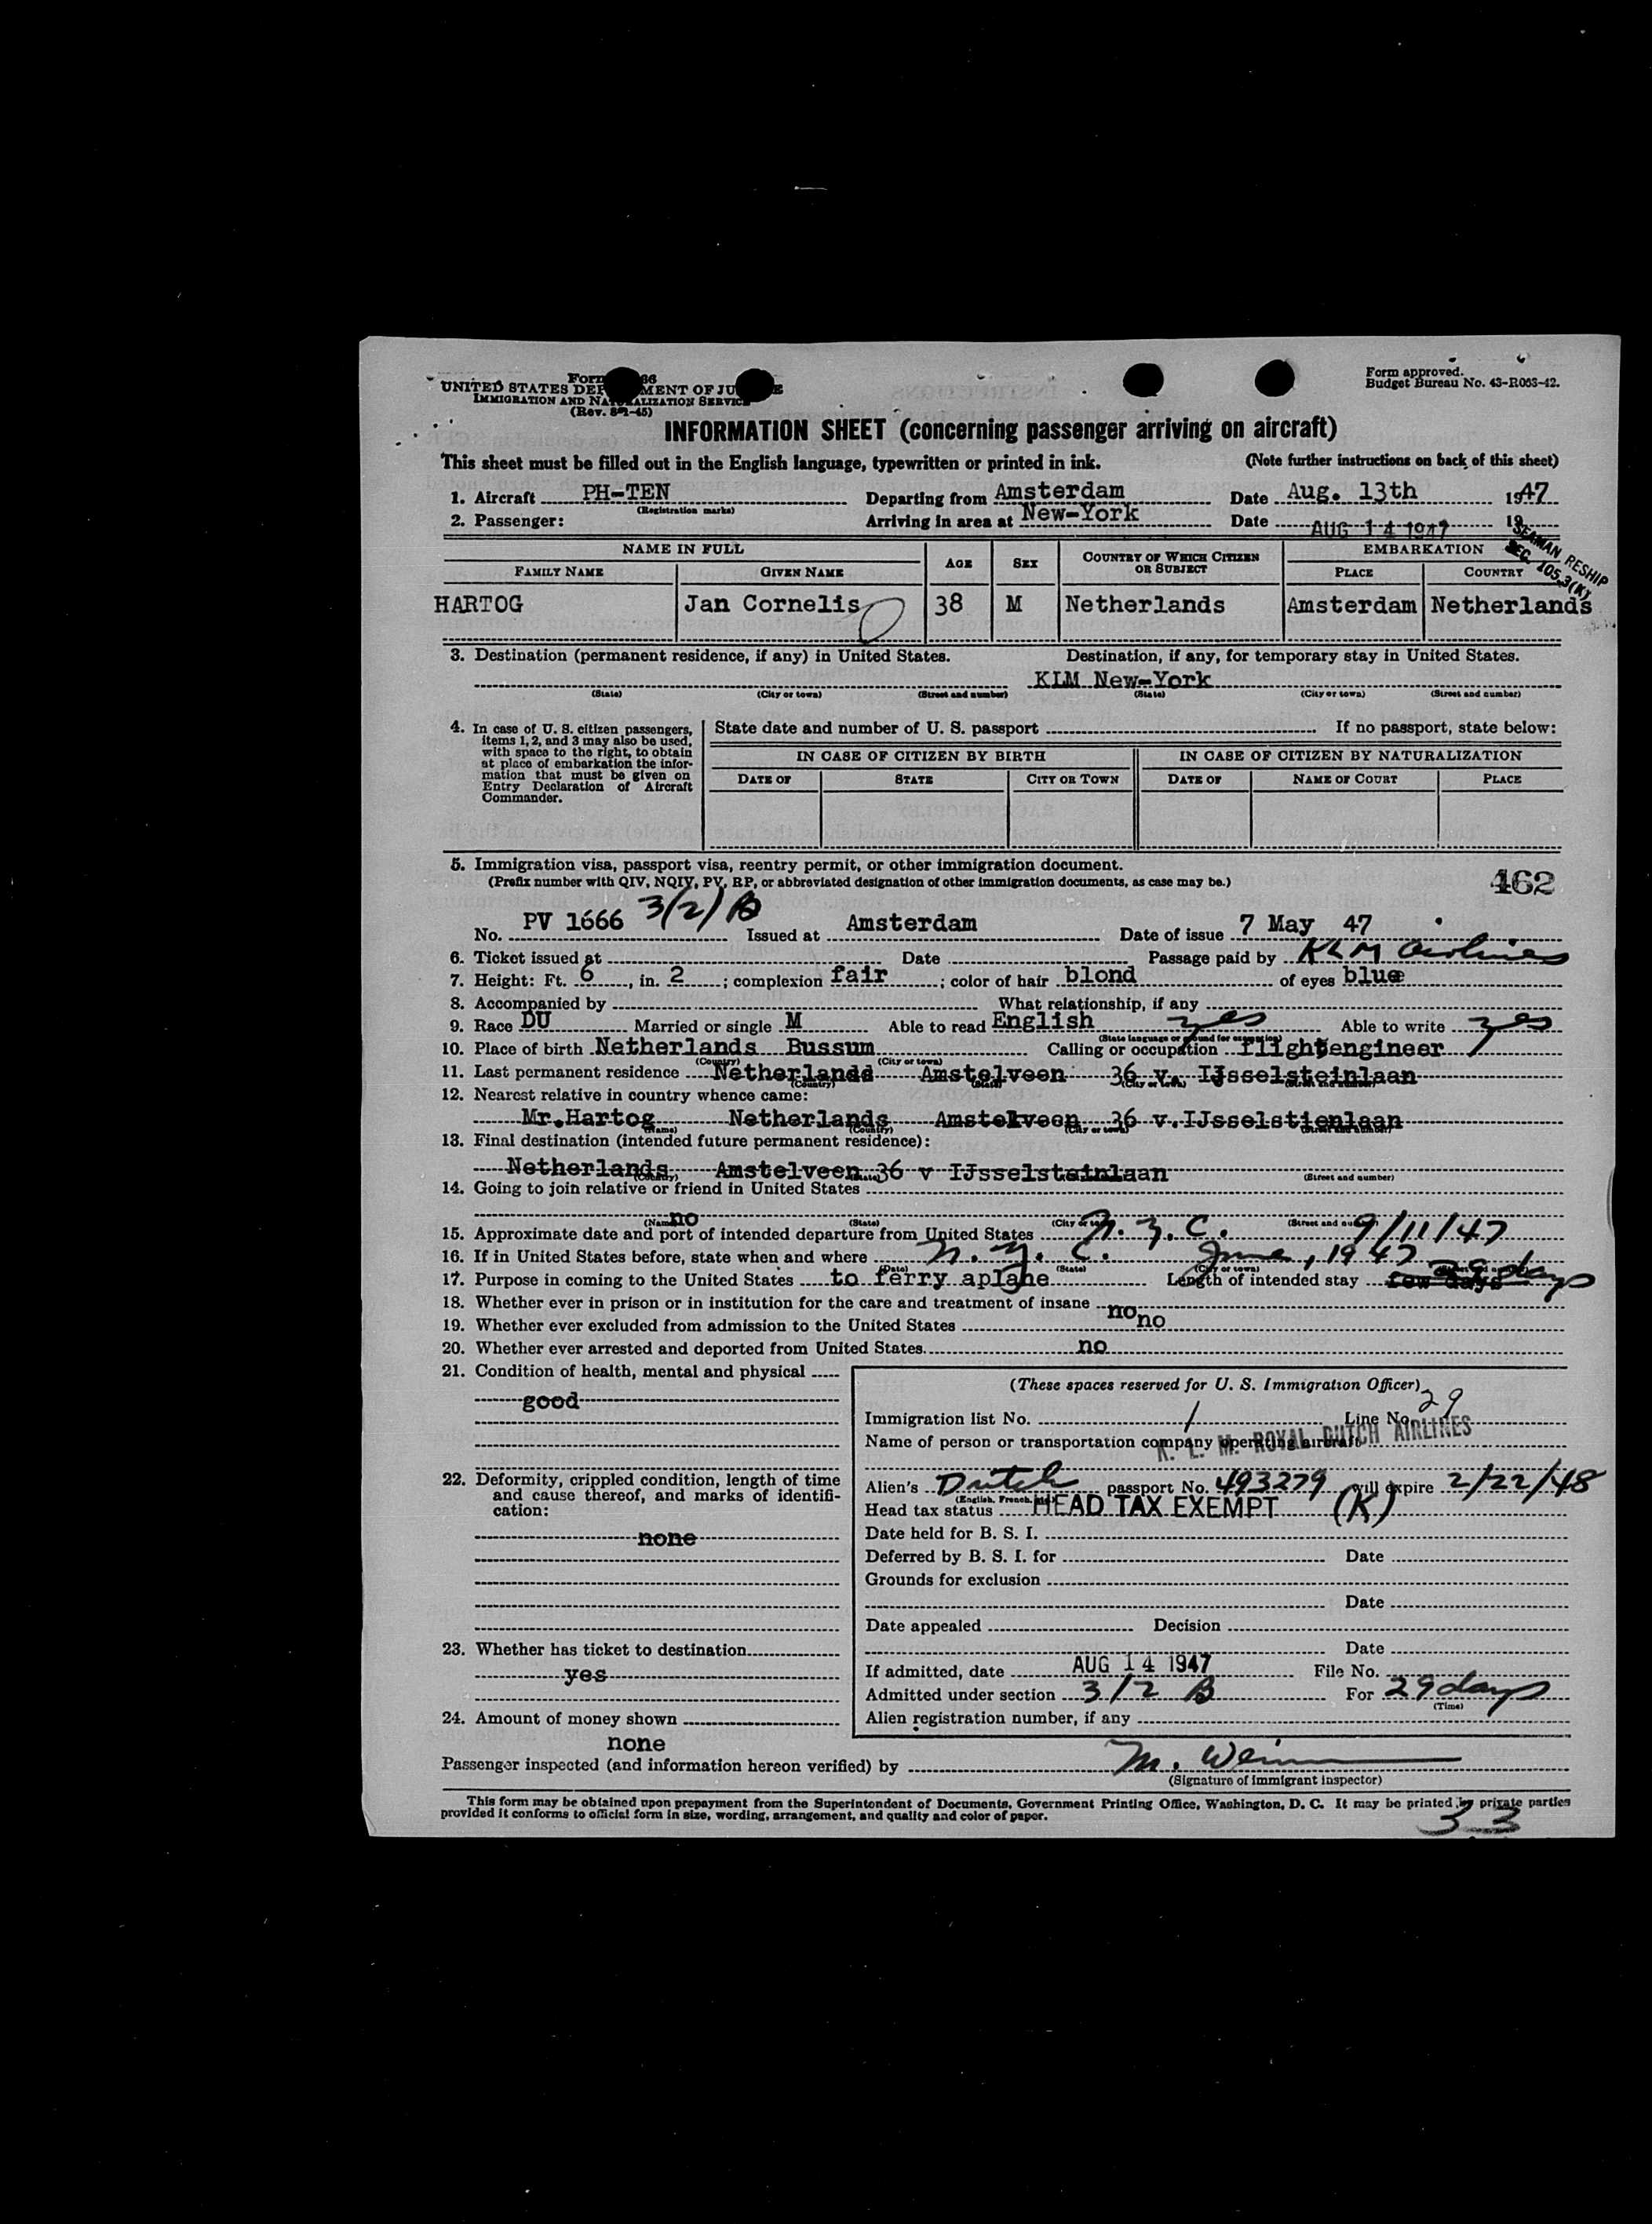 Form 66
UNITED STATES DEPARTMENT OF JUSTICE
IMMIGRATION AND NATURALIZATION SERVICE
(Rev. 8-1-45)
Form approved.
Budget Bureau No. 43-R063-42.
INFORMATION SHEET (concerning passenger arriving on aircraft)
This sheet must be filled out in the English language, typewritten or printed in ink. (Note further instructions on back of this sheet)
1. Aircraft PH-TEN Departing from Amsterdam Date Aug. 13th 1947
(Registration marks)
2. Passenger: Arriving in area at New-York Date AUG 14 1947 19
SEAMAN RESHIP
SEC. 105.3(K)
NAME IN FULL AGE SEX COUNTRY OF WHICH CITIZEN OR SUBJECT EMBARKATION
FAMILY NAME GIVEN NAME PLACE COUNTRY
HARTOG Jan Cornelis 38 M Netherlands Amsterdam Netherlands
3. Destination (permanent residence, if any) in United States. Destination, if any, for temporary stay in United States.
KLM New-York
(State) (City or town) (Street and number) (State) (City or town) (Street and number)
4. In case of U. S. citizen passengers, items 1, 2, and 3 may also be used, with space to the right, to obtain at place of embarkation the information that must be given on Entry Declaration of Aircraft Commander.
State date and number of U. S. passport If no passport, state below:
IN CASE OF CITIZEN BY BIRTH IN CASE OF CITIZEN BY NATURALIZATION
DATE OF STATE CITY OR TOWN DATE OF NAME OF COURT PLACE
5. Immigration visa, passport visa, reentry permit, or other immigration document.
(Prefix number with QIV, NQIV, PV, RP, or abbreviated designation of other immigration documents, as case may be.) 462
No. PV 1666 3/2/B Issued at Amsterdam Date of issue 7 May 47
6. Ticket issued at Date Passage paid by KLM Airlines
7. Height: Ft. 6, in. 2; complexion fair; color of hair blond of eyes blue
8. Accompanied by What relationship, if any
9. Race DU Married or single M Able to read English yes Able to write yes
(State language or ground for exemption)
10. Place of birth Netherlands Bussum Calling or occupation flightengineer
(Country) (City or town)
11. Last permanent residence Netherlands Amstelveen 36 v. IJsselsteinlaan
(Country) (State) (City or town) (Street and number)
12. Nearest relative in country whence came:
Mr. Hartog Netherlands Amstelveen 36 v. IJsselstienlaan
(Name) (Country) (City or town) (Street and number)
13. Final destination (intended future permanent residence):
Netherlands Amstelveen 36 v IJsselsteinlaan
(Country) (State) (Street and number)
14. Going to join relative or friend in United States
no
(Name) (State) (City or town) (Street and number)
15. Approximate date and port of intended departure from United States N. Y. C. 9/11/47
16. If in United States before, state when and where N. Y. C. June, 1947
(Date) (State) (City or town)
17. Purpose in coming to the United States to ferry aplane Length of intended stay few days 29 days
18. Whether ever in prison or in institution for the care and treatment of insane no
19. Whether ever excluded from admission to the United States no
20. Whether ever arrested and deported from United States no
21. Condition of health, mental and physical
good
22. Deformity, crippled condition, length of time and cause thereof, and marks of identification:
none
23. Whether has ticket to destination
yes
24. Amount of money shown
none
(These spaces reserved for U. S. Immigration Officer)
Immigration list No. 1 Line No. 29
Name of person or transportation company operating aircraft K. L. M. ROYAL DUTCH AIRLINES
Alien's Dutch passport No. 493279 will expire 2/22/48
(English, French, etc.)
Head tax status HEAD TAX EXEMPT (K)
Date held for B. S. I.
Deferred by B. S. I. for Date
Grounds for exclusion
Date
Date appealed Decision
Date
If admitted, date AUG 14 1947 File No.
Admitted under section 3/2 B For 29 days
(Time)
Alien registration number, if any
Passenger inspected (and information hereon verified) by M. Wein
(Signature of immigrant inspector)
This form may be obtained upon prepayment from the Superintendent of Documents, Government Printing Office, Washington, D. C. It may be printed by private parties
provided it conforms to official form in size, wording, arrangement, and quality and color of paper.
33